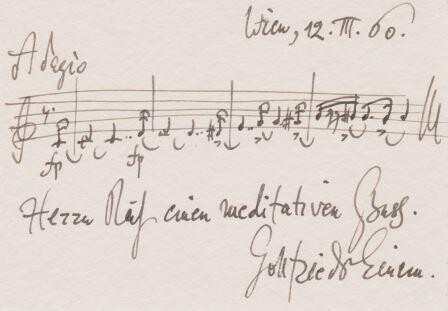 Wien, 12. III. 60.
Adagio
fp fp
Herrn Ruf einen meditativen Gruß.
Gottfried Einem.